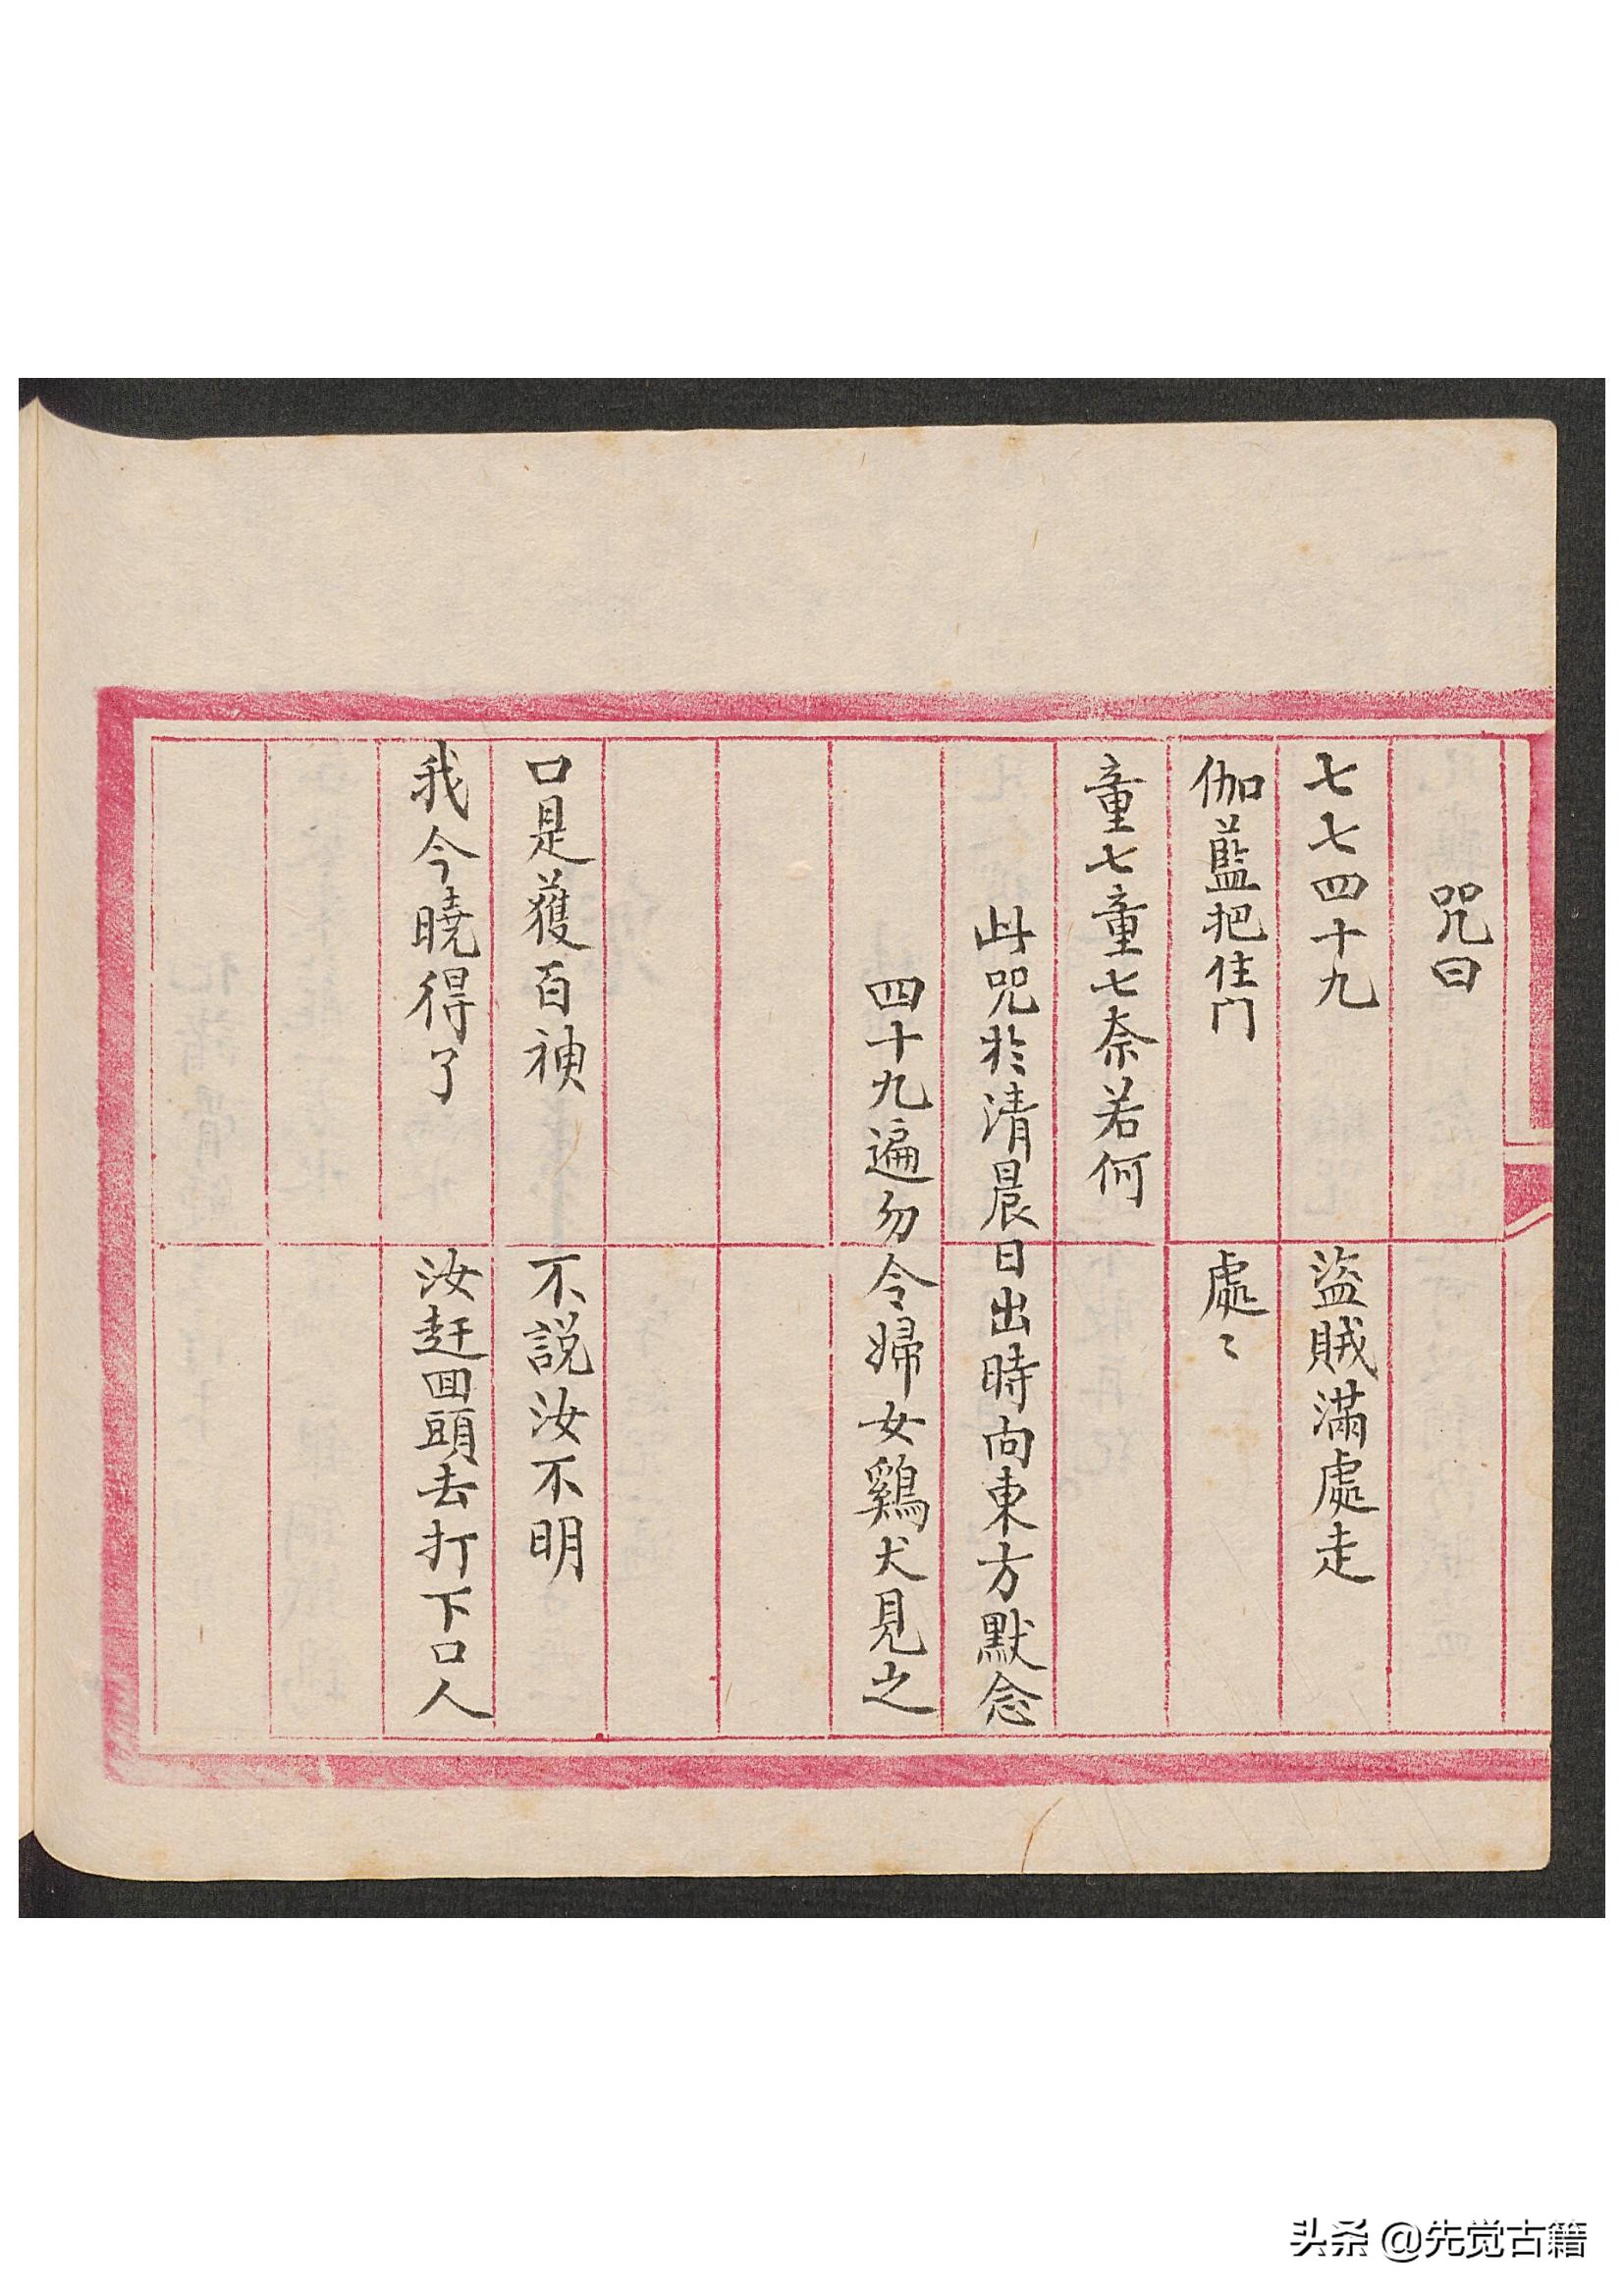 咒曰
七七四十九　盜賊滿處走
伽藍把住門　處〻
童七童七奈若何
此咒於清晨日出時向東方默念
四十九遍勿令婦女鷄犬見之
口是獲百　不説汝不明
我今曉得了　汝赶回頭去打下口人
头条 @先觉古籍